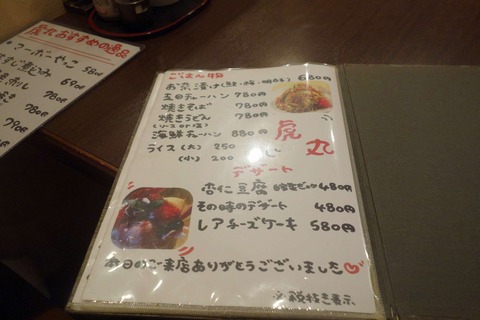 虎丸おすすめの逸品
680円
780円
780円
ごはん物
お茶漬け(鮭・梅・明太子) 680円
五目チャーハン 780円
焼きそば 780円
焼きうどん 780円
(ソース or 塩)
海鮮チャーハン 880円
ライス(大) 250
(小) 200
虎丸
デザート
杏仁豆腐 480円
その時のデザート 480円
レアチーズケーキ 580円
本日のご来店ありがとうございました
※税抜き表示